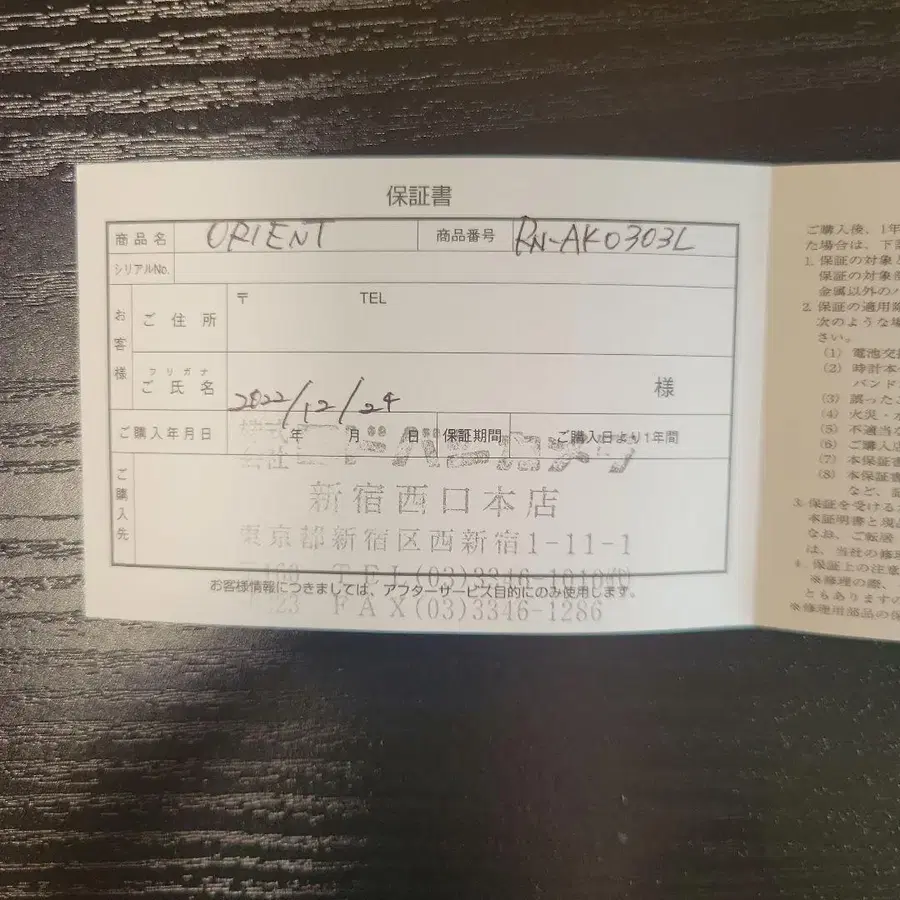 保証書
商品名 ORIENT 商品番号 RN-AK0303L
シリアルNo.
お客様
〒 TEL
ご住所
フリガナ
ご氏名 様
2022/12/24
ご購入年月日 年 月 日 保証期間 ご購入日より1年間
株式会社ヨドバシカメラ
ご購入先
新宿西口本店
東京都新宿区西新宿1-11-1
TEL(03)3346-1010
お客様情報につきましては、アフターサービス目的にのみ使用します。
FAX(03)3346-1286
ご購入後、1年
た場合は、下
1. 保証の対象
保証の対象
金属以外の
2. 保証の適用
次のような
さい。
(1) 電池交
(2) 時計本
バンド
(3) 誤ったご
(4) 火災・
(5) 不適当な
(6) ご購入
(7) 本保証書
(8) 本保証書
など、
3. 保証を受ける
本証明書と現
なお、ご転居
は、当社の修理
4. 保証上の注意
※修理の際、
ともありますの
※修理用部品の保